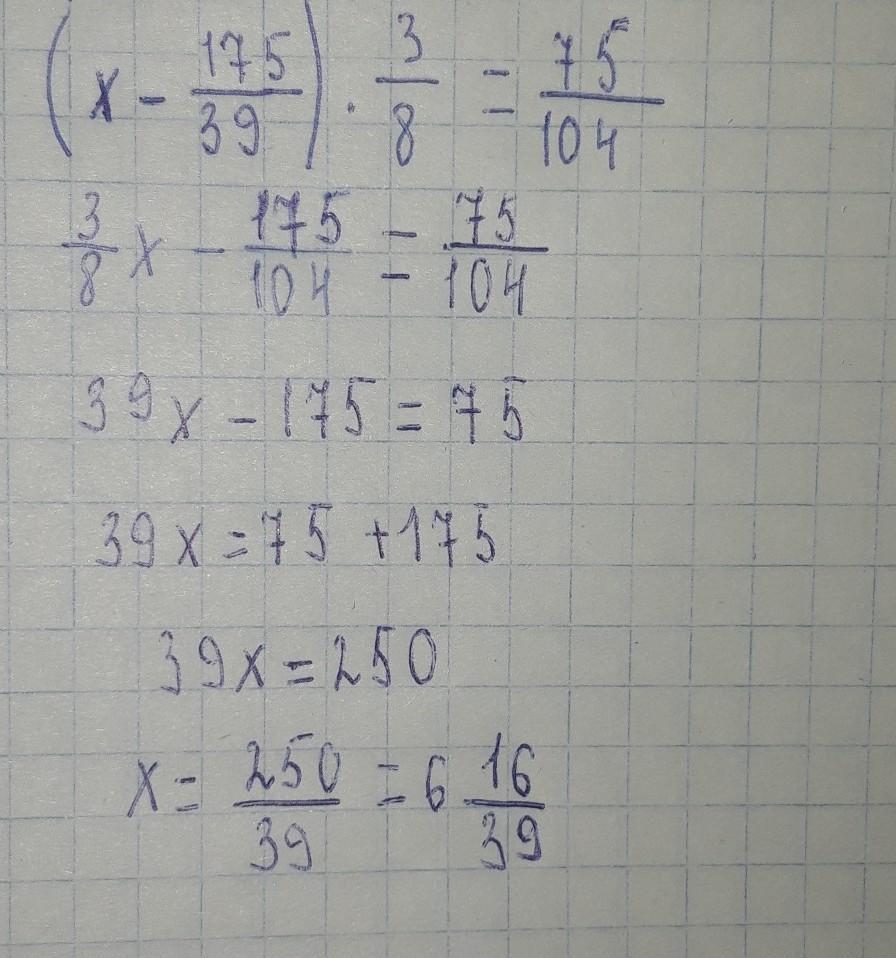 (x - 175/39) · 3/8 = 75/104
3/8 x - 175/104 = 75/104
39x - 175 = 75
39x = 75 + 175
39x = 250
x = 250/39 = 6 16/39